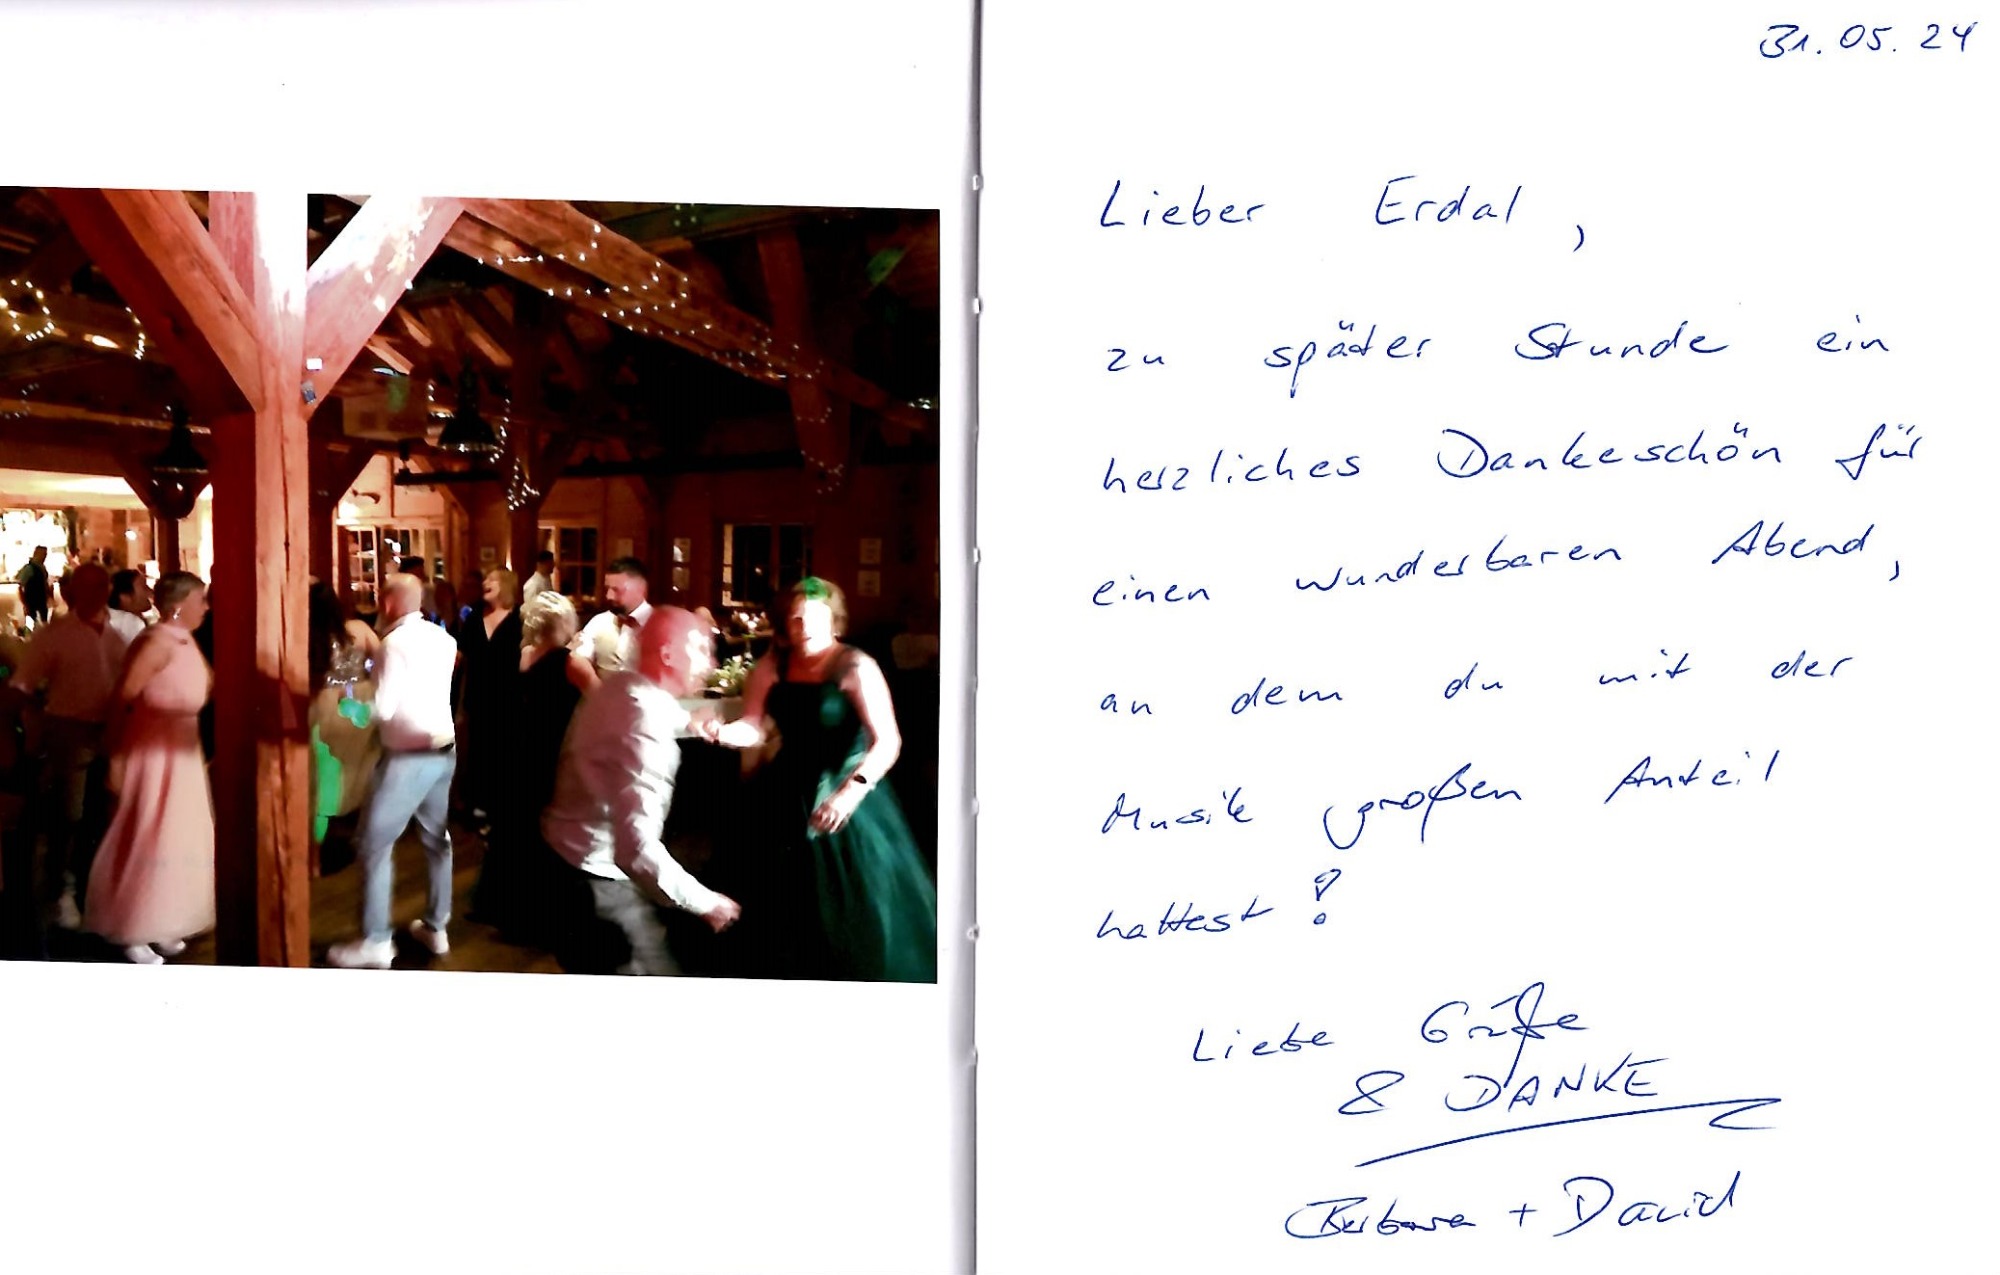 31.05.24
Lieber Erdal,
zu später Stunde ein
herzliches Dankeschön für
einen wunderbaren Abend,
an dem du mit der
Musik großen Anteil
hattest!
Liebe Grüße
& DANKE
Barbara + David